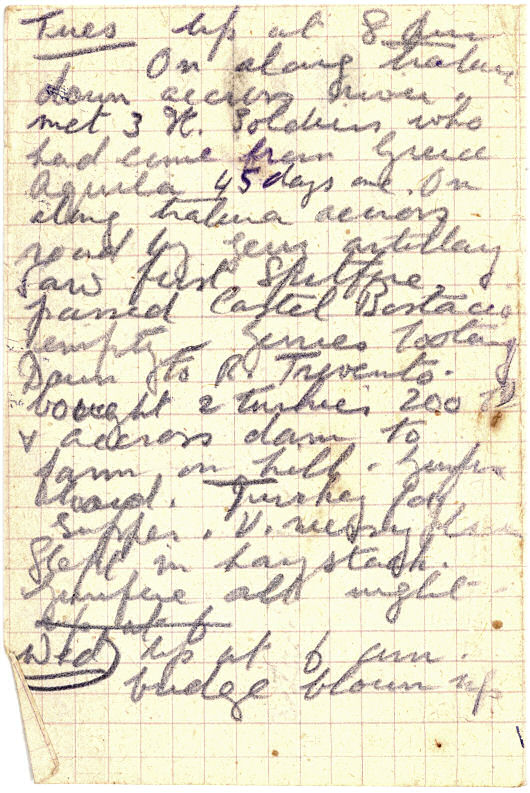 Tues Up at 8 am
On along tratura
down accross river.
met 3 It. Soldiers who
had come from Greece
Aquila 45 days ago. On
along tratura accross
road by Jerry artillery
saw first Spitfire,
passed Castel Bottacio
empty Jerries looting
Down to R. Trevento.
bought 2 turkies 200
& accross dam to
farm on hill. Gunfire
heard. Turkey for
supper. V. merry
Slept in haystack.
Gunfire all night
Wed Up at 6 am.
bridge blown up